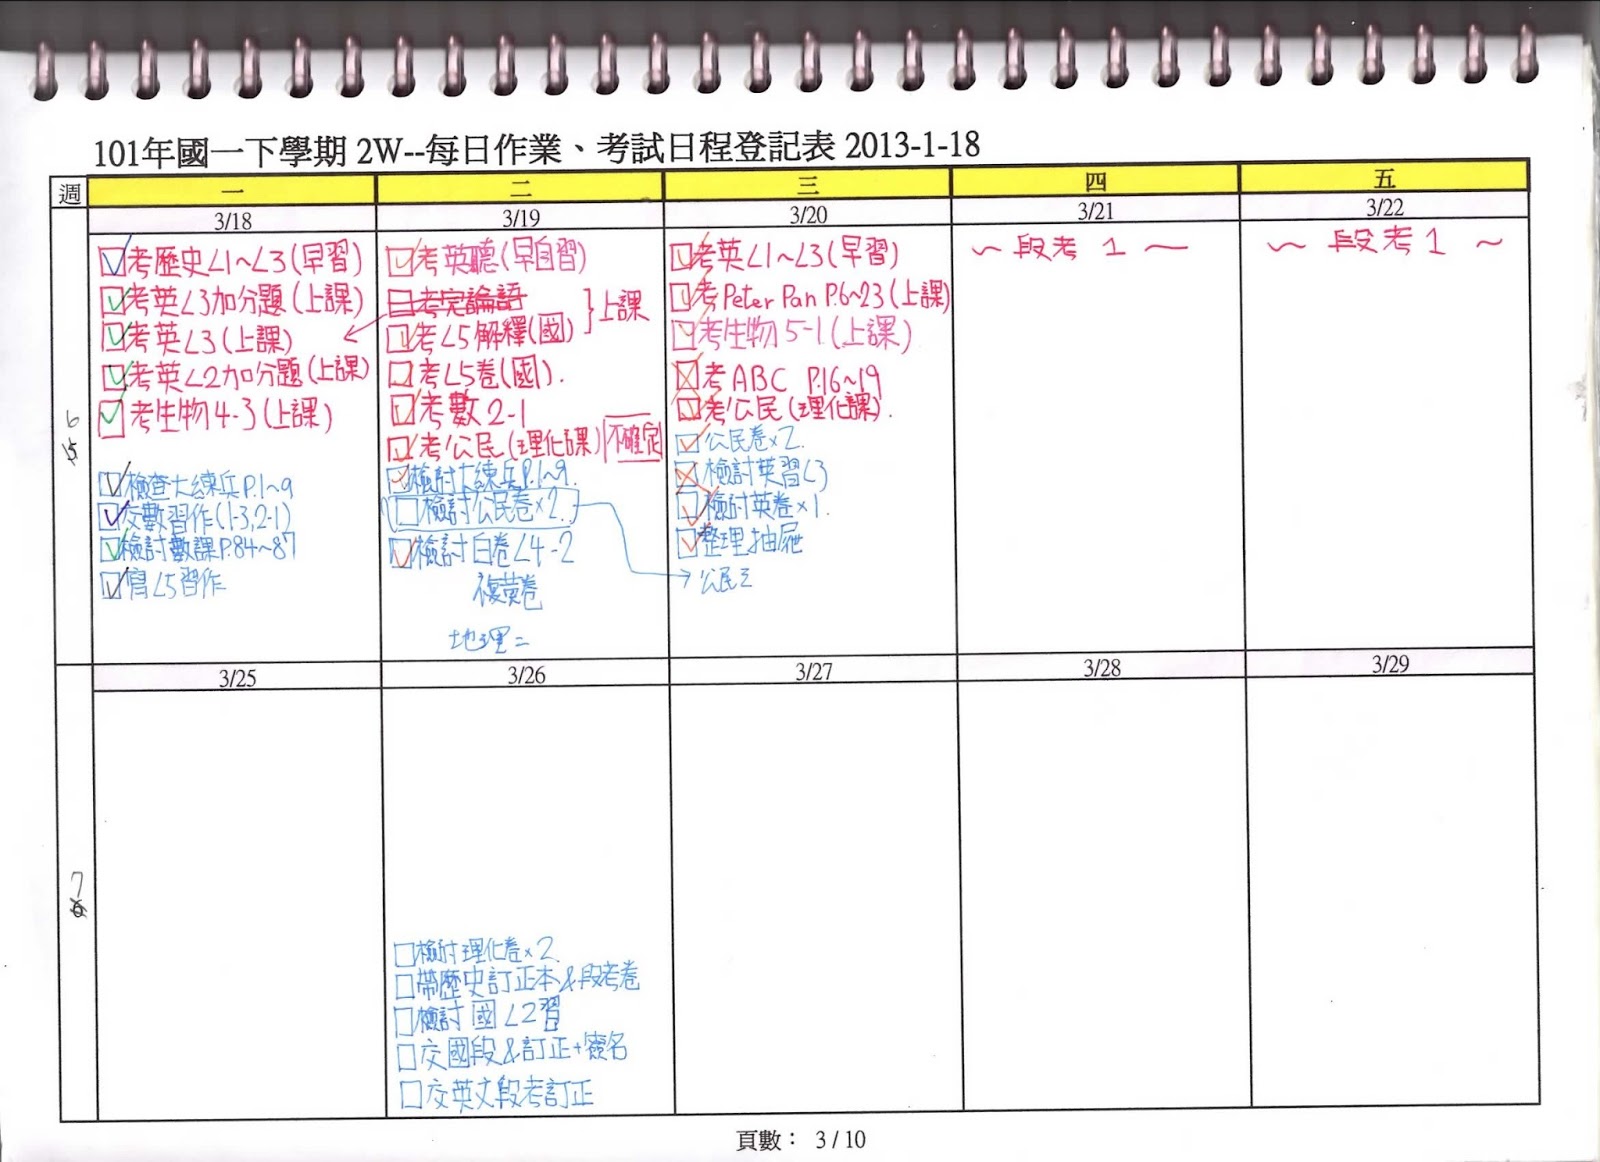 101年國一下學期 2W--每日作業、考試日程登記表 2013-1-18
週 一 二 三 四 五
3/18 3/19 3/20 3/21 3/22
6
考歷史L1~L3(早習)
考英L3加分題(上課)
考英L3(上課)
考英L2加分題(上課)
考生物4-3(上課)
檢查大練兵P.1~9
交數習作(1-3,2-1)
檢討數課P.84~87
寫L5習作
考英聽(早自習)
考完論語
考L5解釋(國)
上課
考L5卷(國).
考數2-1
考公民(理化課) 不確定
檢討大練兵P.1~9.
檢討公民卷×2.
檢討白卷L4-2
複英卷
地理二
考英L1~L3(早習)
考Peter Pan P.6~23(上課)
考生物5-1(上課)
考ABC P.16~19
考公民(理化課).
公民卷×2.
檢討英習L3
檢討英卷×1.
整理抽屜
公民三
~段考 1~
~段考 1~
3/25 3/26 3/27 3/28 3/29
7
檢討理化卷×2.
帶歷史訂正本&段考卷
檢討國L2習
交國段&訂正+簽名
交英文段考訂正
頁數： 3 / 10